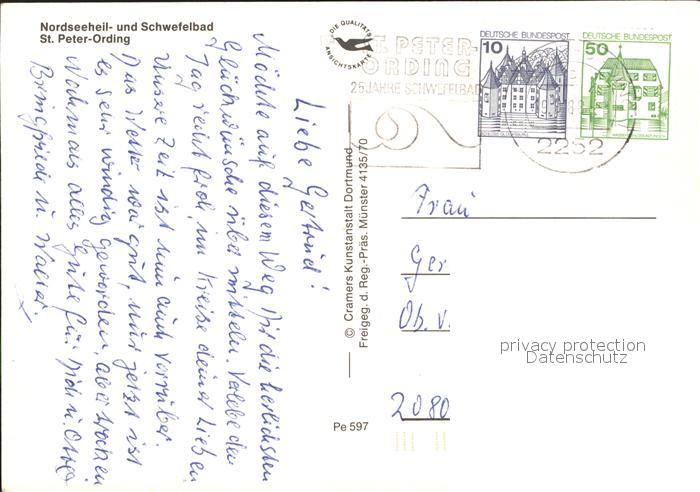 Nordseeheil- und Schwefelbad
St. Peter-Ording
DIE QUALITÄTS
ANSICHTSKARTE
ST. PETER-
ORDING
25 JAHRE SCHWEFELBAD
DEUTSCHE BUNDESPOST
10
DEUTSCHE BUNDESPOST
50
2252
Liebe Gertrud!
Möchte auf diesem Weg Dir die herlichsten
Glückwünsche über mitteln. Verlebe den
Tag recht froh, im Kreise deiner Lieben
Unsere Zeit ist nun auch vorrüber.
Das Wetter war gut, nur jetzt ist
es sehr windig geworden, aber trocken
Nochmals alles Gute für Dich u. Otto
Bringfriede u. Walter.
© Cramers Kunstanstalt Dortmund
Freigeg. d. Reg.-Präs. Münster 4135/70
Pe 597
Frau
Ger
Ob. v.
2080
privacy protection
Datenschutz